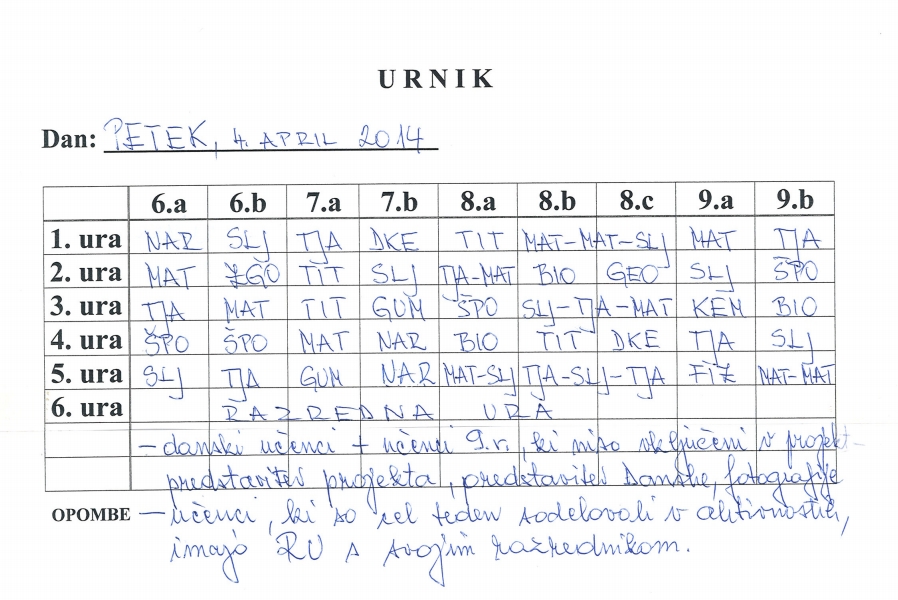 URNIK
Dan: PETEK, 4. APRIL 2014
6.a 6.b 7.a 7.b 8.a 8.b 8.c 9.a 9.b
1. ura NAR SLJ TJA DKE TIT MAT-MAT-SLJ MAT TJA
2. ura MAT ZGO TIT SLJ TJA-MAT BIO GEO SLJ ŠPO
3. ura TJA MAT TIT GUM ŠPO SLJ-TJA-MAT KEM BIO
4. ura ŠPO ŠPO MAT NAR BIO TIT DKE TJA SLJ
5. ura SLJ TJA GUM NAR MAT-SLJ TJA-SLJ-TJA FIZ MAT-MAT
6. ura RAZREDNA URA
- danski učenci + učenci 9.r., ki niso vključeni v projekt -
predstavitev projekta, predstavitev Danske, fotografije
OPOMBE - učenci, ki so cel teden sodelovali v aktivnostih,
imajo RU s svojim razrednikom.